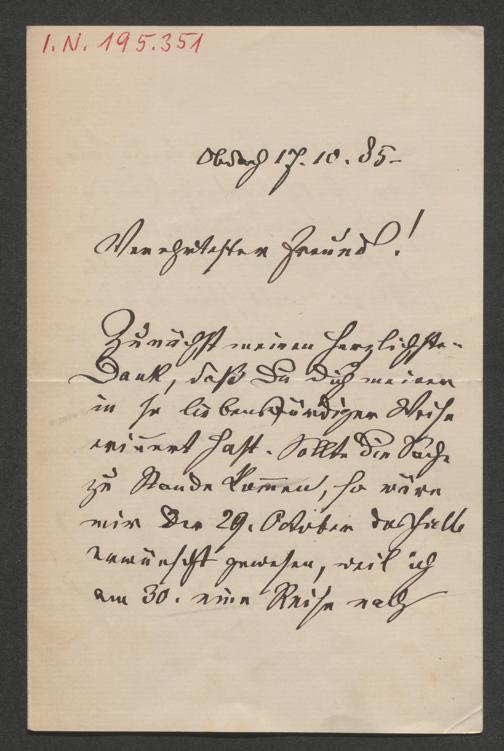 I.N. 195.351
Obdach 17.10.85-
Verehrtester Freund!
Zunächst meinen herzlichsten
Dank, daß Du Dich meiner
in so liebenswürdiger Weise
erinnert hast. Sollte die Sache
zu Stande kommen, so wäre
mir der 29. October deshalb
erwünscht gewesen, weil ich
am 30. eine Reise nach